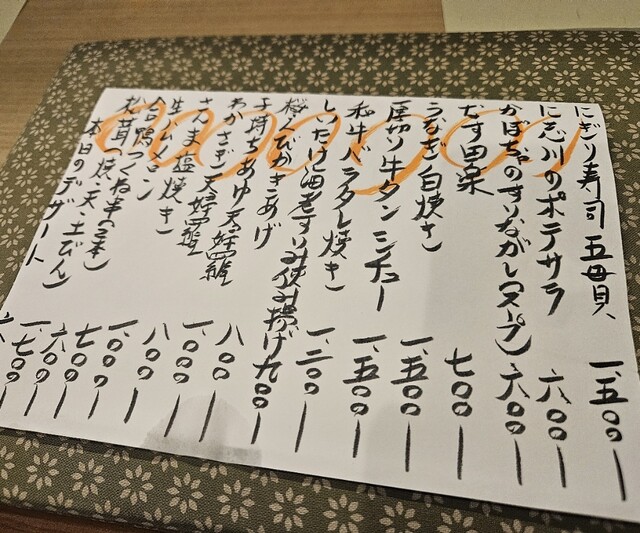 にぎり寿司 五貫 一、五〇〇ー
に志川のポテサラ 六〇〇ー
かぼちゃのすりながし(スープ) 六〇〇ー
なす田楽 七〇〇ー
うなぎ白焼き 一、五〇〇ー
厚切り牛タンシチュー 一、五〇〇ー
和牛バラタレ焼き 一、二〇〇ー
しいたけ海老すり身挟み揚げ 九〇〇ー
桜えびかきあげ 八〇〇ー
子持ちあゆ天婦羅 一、〇〇〇ー
わかさぎ天婦羅 八〇〇ー
さんま塩焼き 一、〇〇〇ー
生ハムメロン 七〇〇ー
合鴨つくね串(2本) 六〇〇ー
松茸(焼・天・土びん) 一、七〇〇ー
本日のデザート